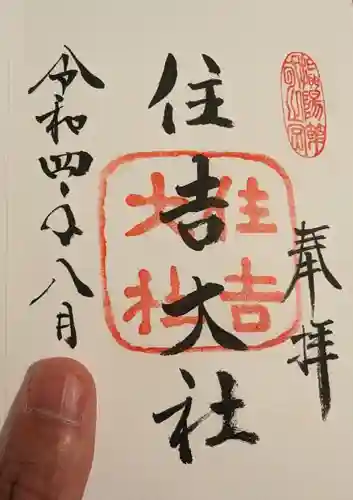 奉拝
住吉大社
住吉大社
令和四年八月